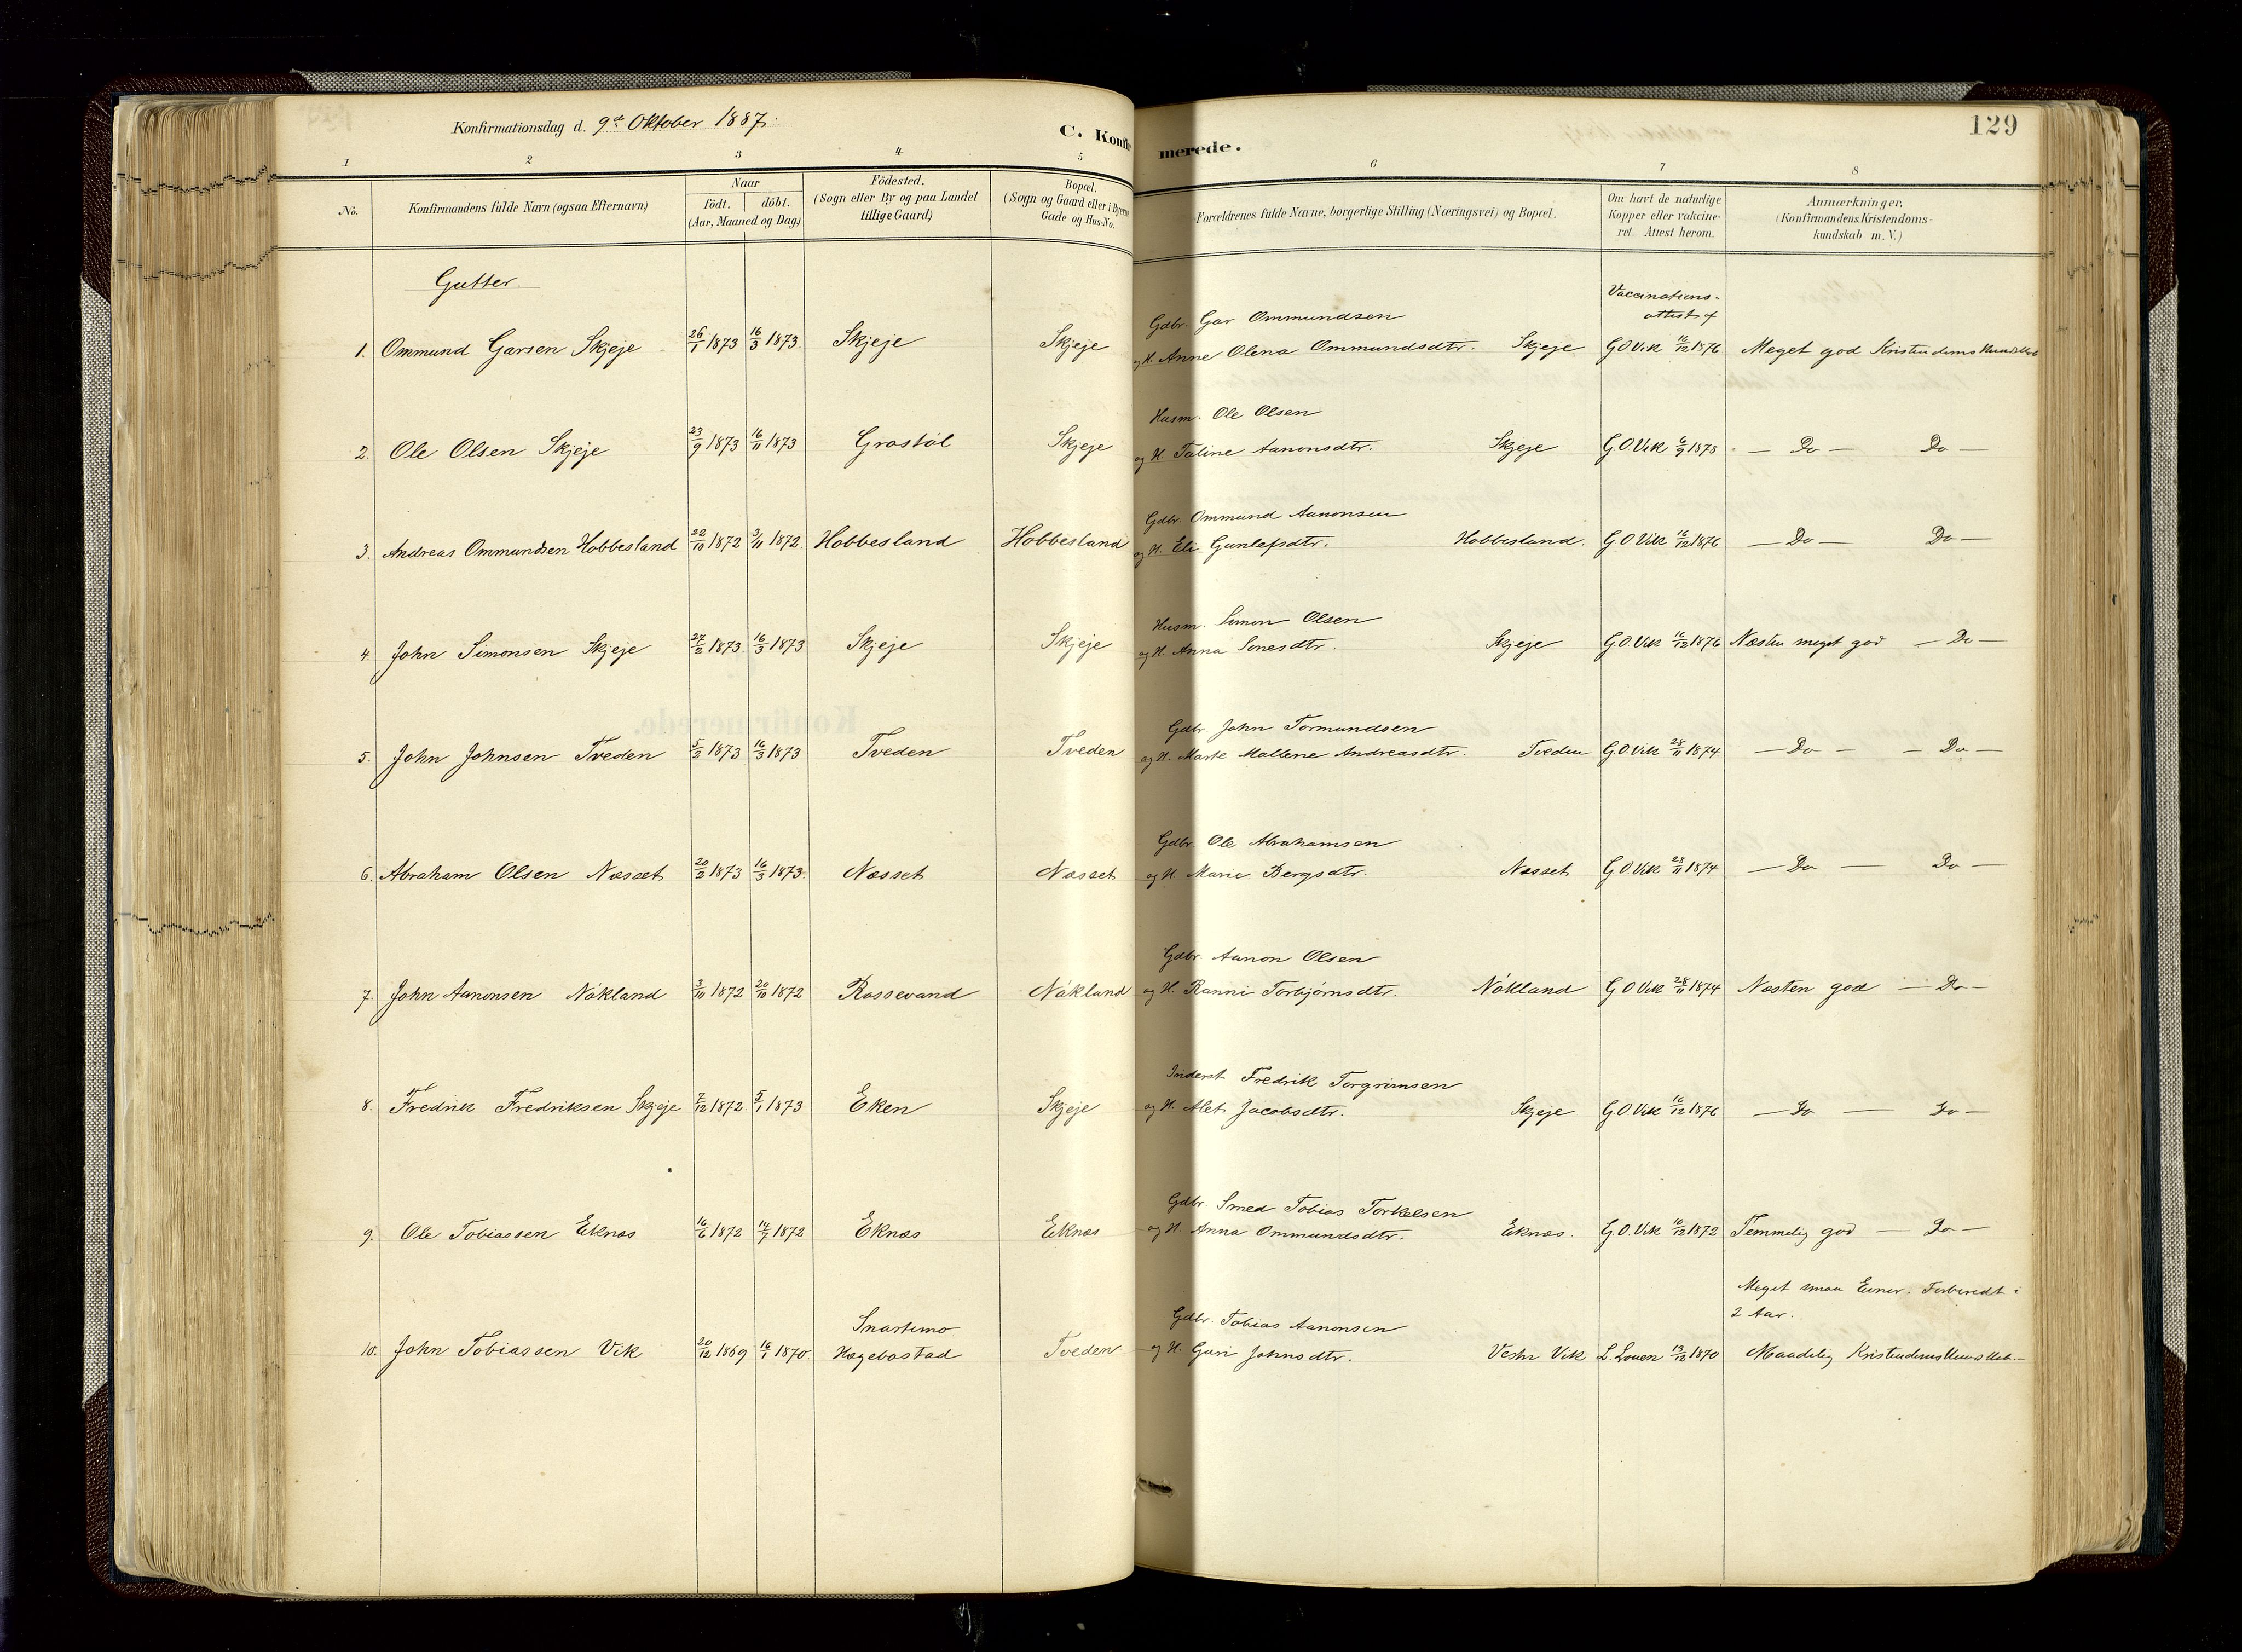 Konfirmationsdag d. 9de Oktober 1887.
C. Konfirmerede.
129
1 2 3 4 5 6 7 8
No.
Konfirmandens fulde Navn (ogsaa Efternavn)
Naar
födt. döbt.
(Aar, Maaned og Dag)
Födested.
(Sogn eller By og paa Landet
tillige Gaard)
Bopæl.
(Sogn og Gaard eller i Byerne
Gade og Hus-No.
Forældrenes fulde Navne, borgerlige Stilling (Næringsvei) og Bopæl.
Om havt de naturlige
Kopper eller vakcine-
ret. Attest herom.
Anmærkninger.
(Konfirmandens Kristendoms-
kundskab m. V.)
Gutter.
Vaccinations-
attest af
Gdbr. Gar Ommundsen
1. Ommund Garsen Skjeje 26/1 1873 16/3 1873 Skjeje Skjeje og H. Anne Olena Ommundsdtr. Skjeje G O Vik 16/12 1876 Meget god Kristendomskundskab
Husm. Ole Olsen
2. Ole Olsen Skjeje 23/9 1873 16/11 1873 Grostöl Skjeje og H. Taline Aanonsdtr. Skjeje G. O Vik 6/9 1878 — Do — Do —
Gdbr. Ommund Aanonsen
3. Andreas Ommundsen Hobbesland 22/10 1872 3/11 1872 Hobbesland Hobbesland og H. Eli Gunlefsdtr. Hobbesland. G O Vik 16/12 1876 — Do — Do —
Husm. Simon Olsen
4. John Simonsen Skjeje 27/2 1873 16/3 1873 Skjeje Skjeje og H. Anna Sonesdtr. Skjeje G O Vik 16/12 1876 Næsten meget god — Do —
Gdbr. John Tormundsen
5. John Johnsen Tveden 5/2 1873 16/3 1873 Tveden Tveden og H. Marte Mallene Andreasdtr. Tveden G. O. Vik 28/11 1874 — Do — — Do —
Gdbr. Ole Abrahamsen
6. Abraham Olsen Næsset 20/2 1873 16/3 1873. Næsset Næsset og H. Marie Bergsdtr. Næsset G O Vik 28/11 1874 — Do — Do —
Gdbr. Aanon Olsen
7. John Aanonsen Nökland 3/10 1872 20/10 1872 Rossevand Nökland og H. Ranni Torbjörnsdtr. Nökland G O Vik 28/11 1874 Næsten god — Do —
Inderst Fredrik Torgrimsen
8. Fredrik Fredriksen Skjeje 7/12 1872 5/1 1873 Eken Skjeje og H. Alet Jacobsdtr. Skjeje G O Vik 16/12 1876 — Do — Do —
Gdbr. Smed Tobias Torkelsen
9. Ole Tobiassen Eknæs 16/6 1872 14/7 1872 Eknæs Eknæs og H. Anna Ommundsdtr. Eknæs. G. O. Vik 16/12 1872 Temmelig god — Do —
Meget smaa Evner. Forberedt i
2 Aar.
Gdbr. Tobias Aanonsen
Snartemo
10. John Tobiassen Vik 20/12 1869 16/1 1870 Hægebostad Tveden og H. Guri Johnsdtr. Vestr Vik L. Louen 19/12 1870 Maadelig Kristendomskundskab.—